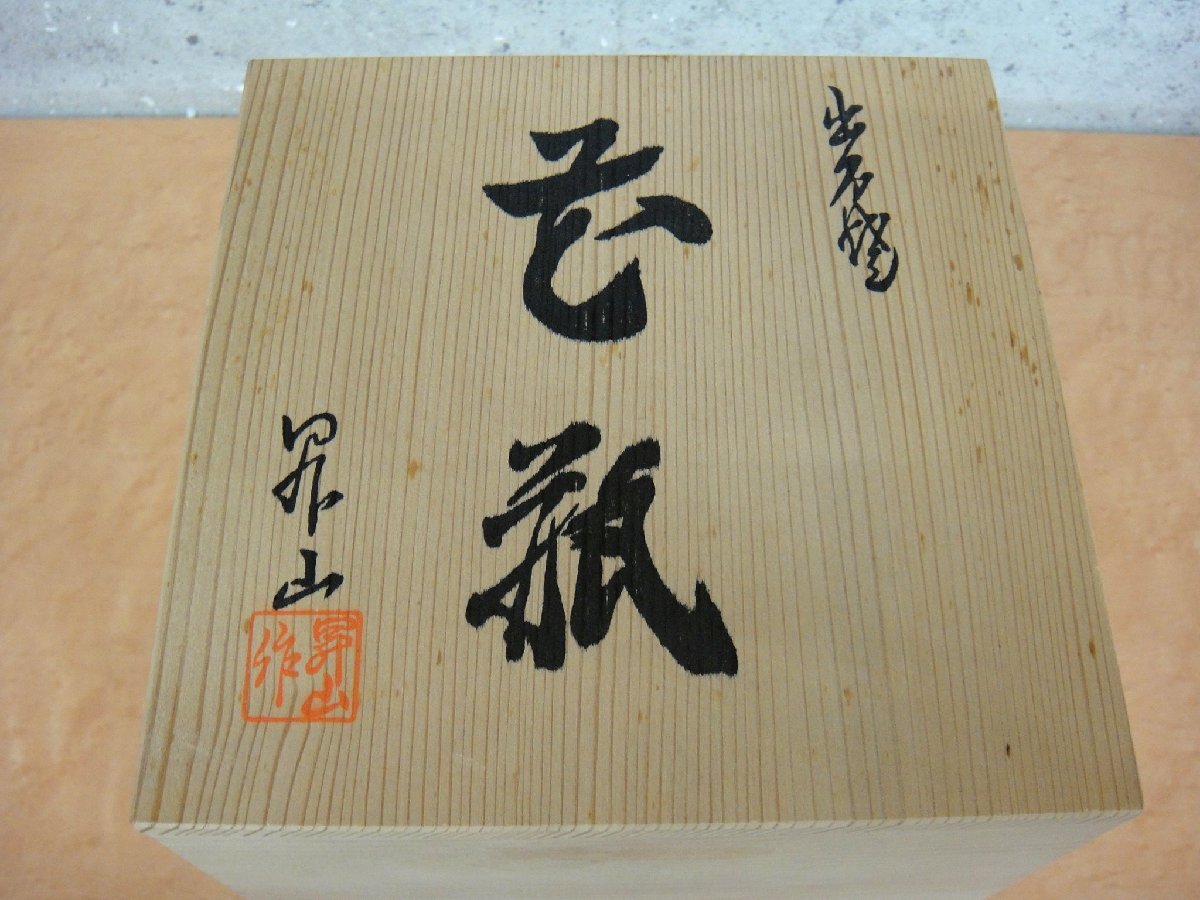 出石焼
花瓶
昇山
昇山作